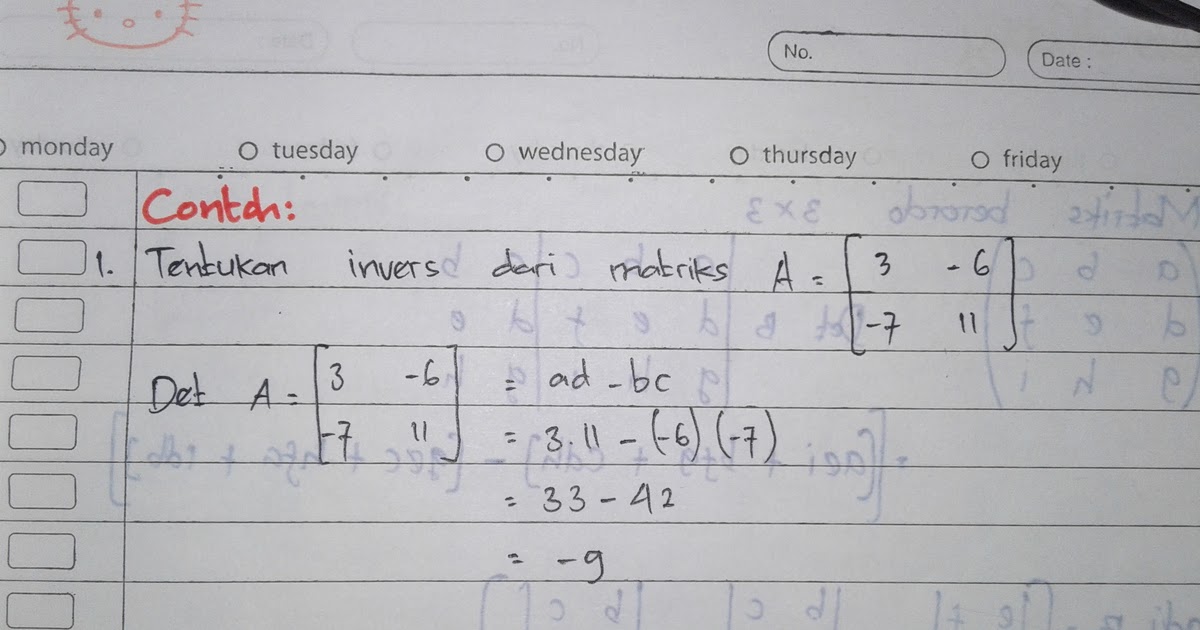 No. Date :
monday tuesday wednesday thursday friday
Contoh:
1. Tentukan invers dari matriks A = [3 -6
-7 11]
Det A = [3 -6
-7 11] = ad - bc
= 3.11 - (-6) (-7)
= 33 - 42
= -9